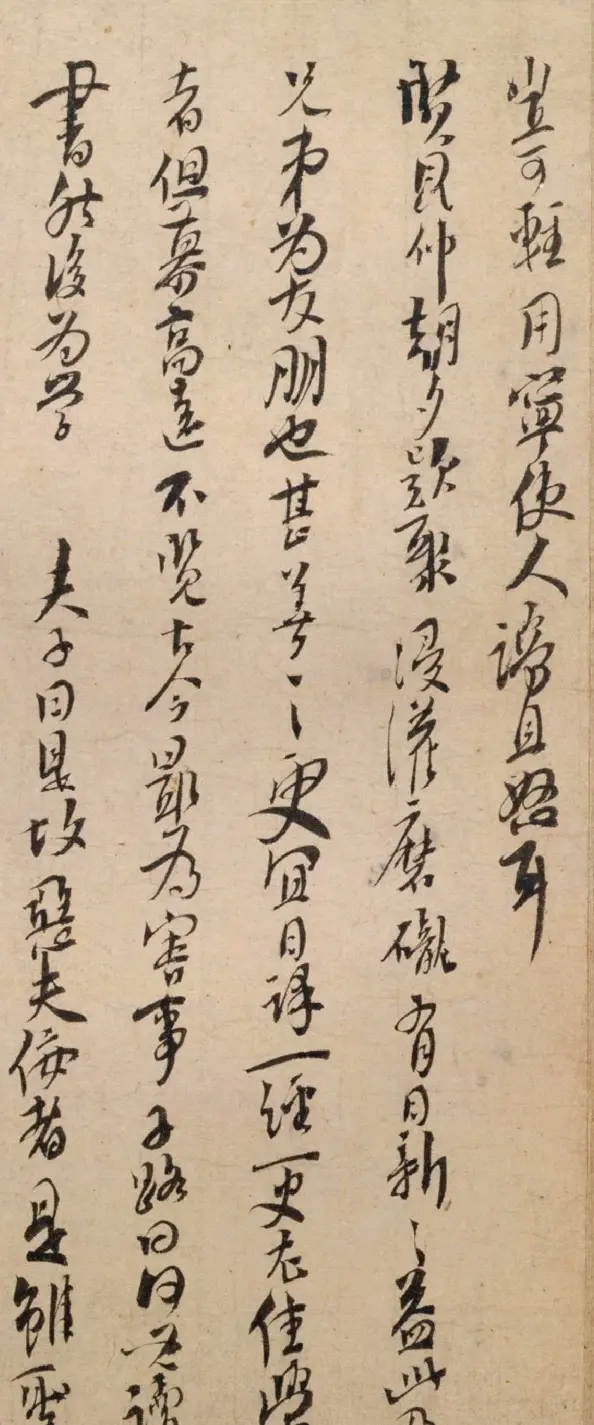 豈可輕用寧使人謗且怒耳
賢昆仲朝夕款聚浸灌磨礲有日新之益此乃
兄弟為友朋也甚善〻更宜日課一經一史尤佳學
者但慕高遠不覽古今最為害事子路曰何必讀
書然後為學 夫子曰是故惡夫佞者是雖